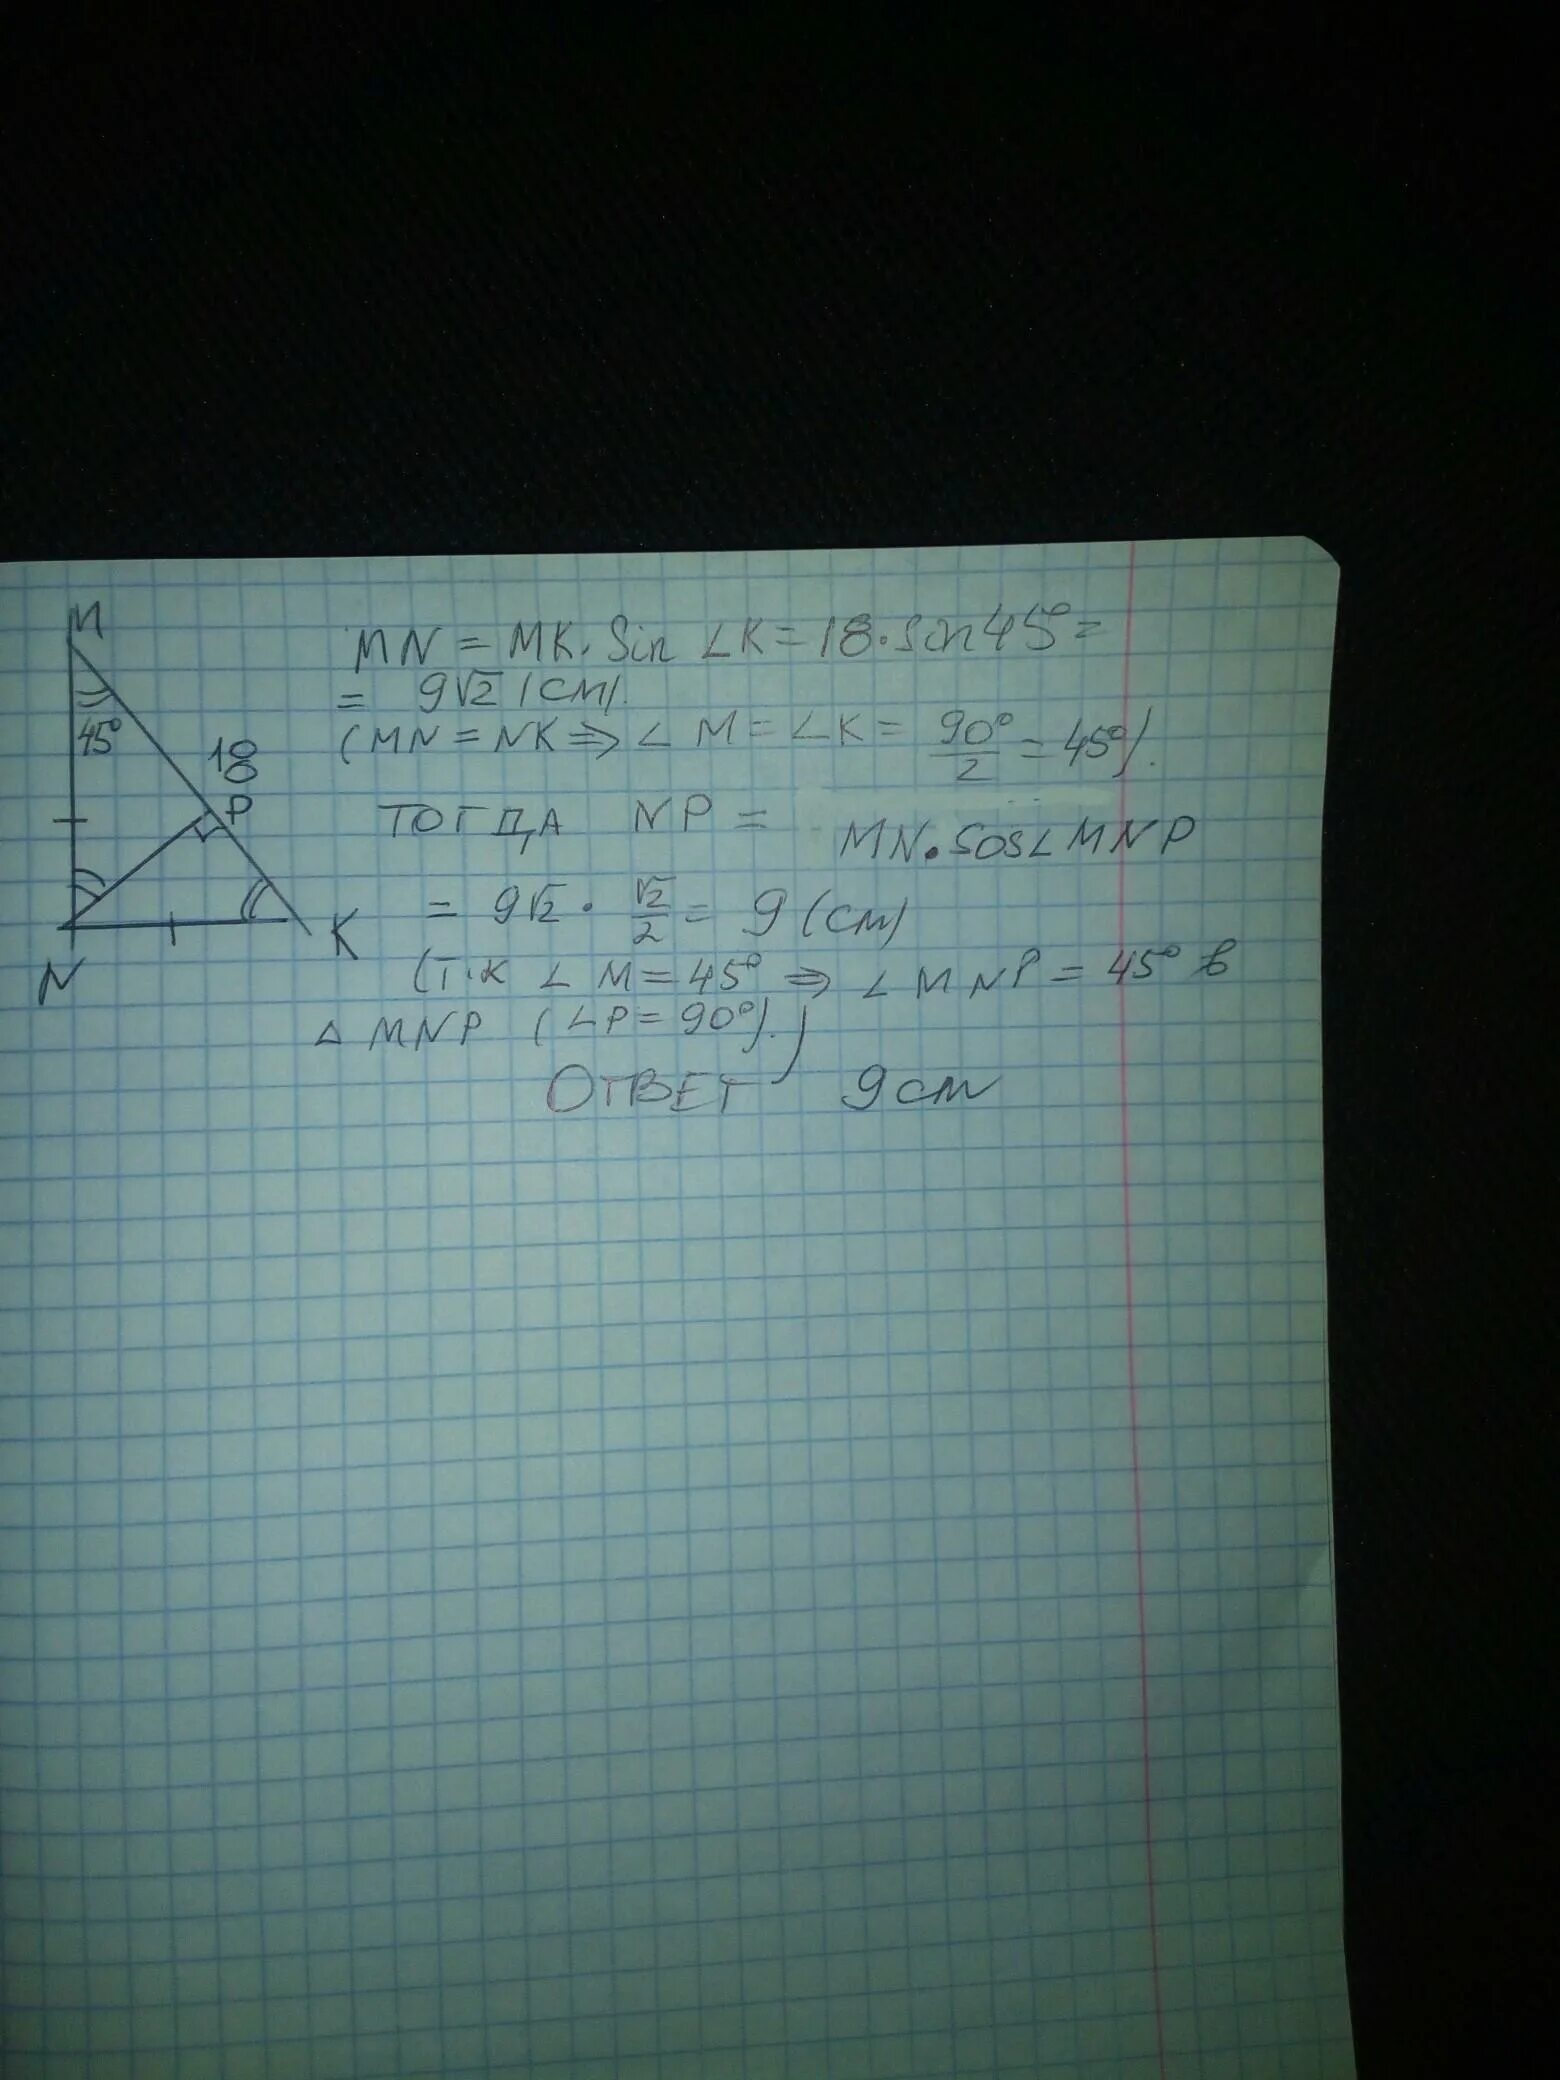 M
45°
18
P
N
K
MN = MK · Sin ∠K = 18 · sin 45° =
= 9√2 (см).
(MN = NK ⇒ ∠ M = ∠K = 90°/2 = 45°).
ТОГДА NP = MN · sos∠ MNP
= 9√2 · √2/2 = 9 (см)
(т.к ∠ M = 45° ⇒ ∠ MNP = 45° в
△ MNP (∠P = 90°).)
ОТВЕТ 9 см